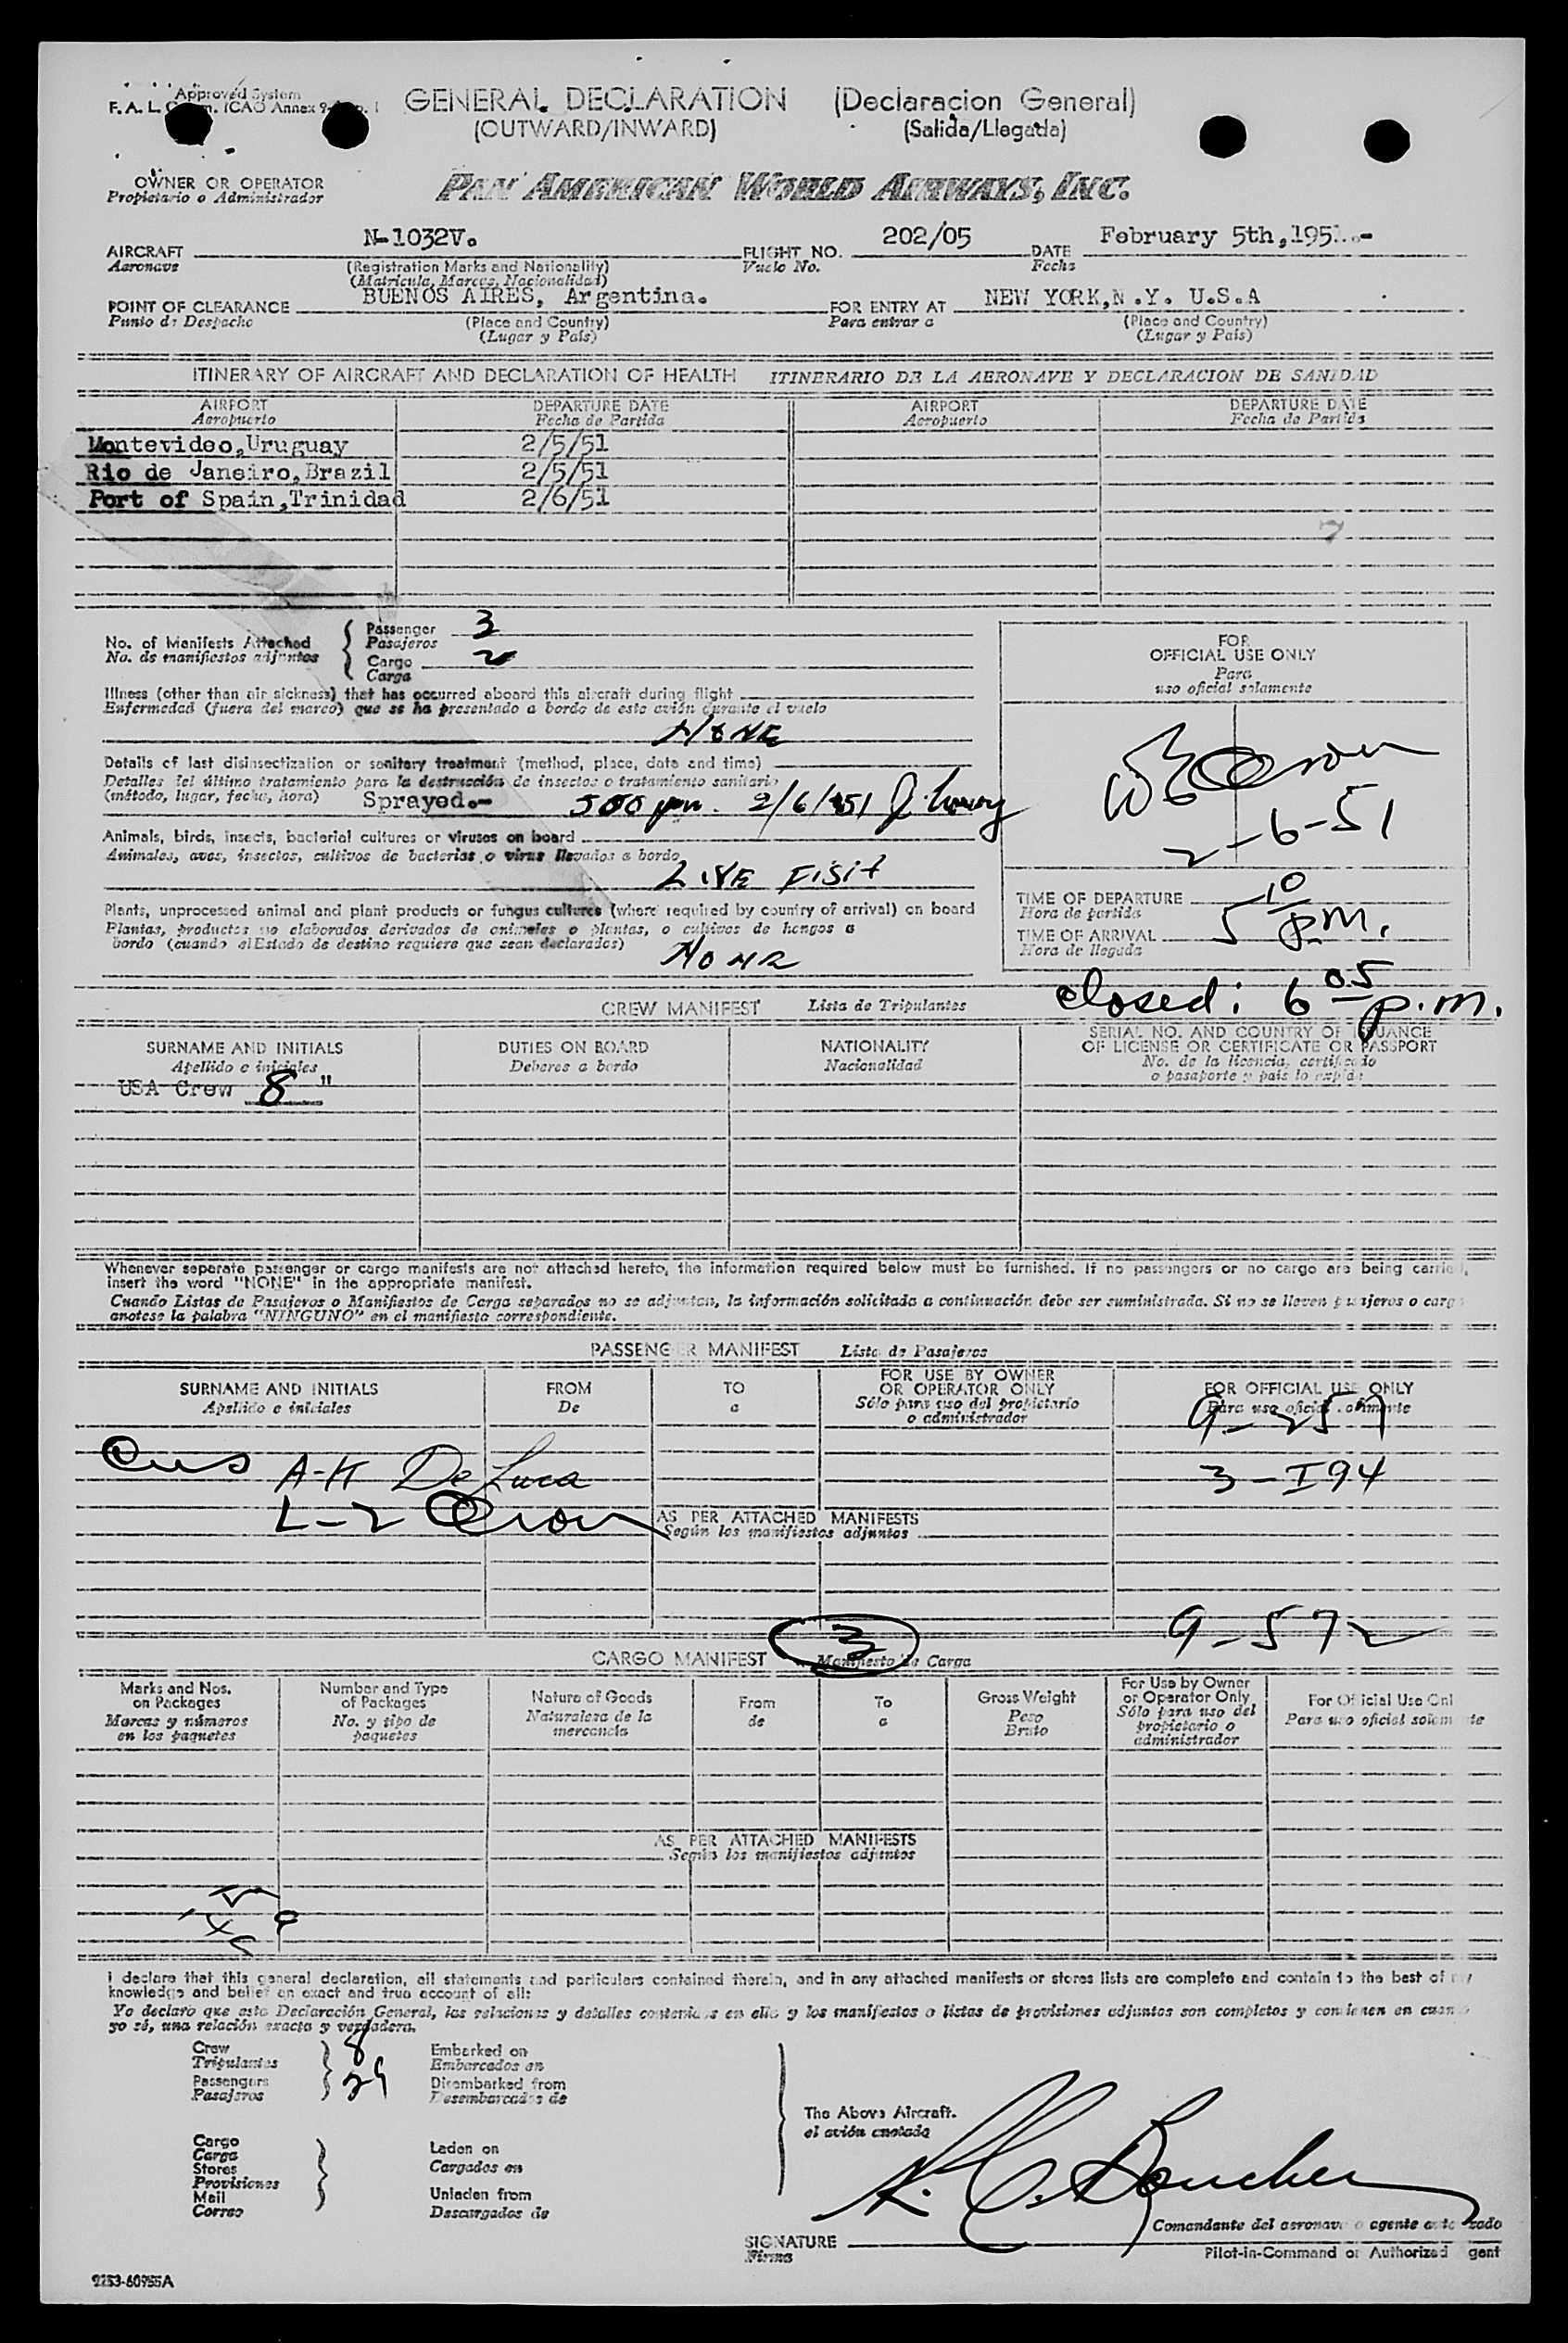 Approved System
F. A. L. ICAO Annex 9
GENERAL DECLARATION (Declaracion General)
(OUTWARD/INWARD) (Salida/Llegada)
OWNER OR OPERATOR
Propietario o Administrador
PAN AMERICAN WORLD AIRWAYS, INC.
AIRCRAFT N-1032V. FLIGHT NO. 202/05 DATE February 5th,1951.-
Aeronave (Registration Marks and Nationality) Vuelo No. Fecha
(Matricula, Marcas, Nacionalidad)
POINT OF CLEARANCE BUENOS AIRES, Argentina. FOR ENTRY AT NEW YORK,N.Y. U.S.A
Punto de Despacho (Place and Country) Para entrar a (Place and Country)
(Lugar y País) (Lugar y País)
ITINERARY OF AIRCRAFT AND DECLARATION OF HEALTH ITINERARIO DE LA AERONAVE Y DECLARACION DE SANIDAD
AIRPORT DEPARTURE DATE AIRPORT DEPARTURE DATE
Aeropuerto Fecha de Partida Aeropuerto Fecha de Partida
Montevideo,Uruguay 2/5/51
Rio de Janeiro,Brazil 2/5/51
Port of Spain,Trinidad 2/6/51
No. of Manifests Attached Passenger 3
No. de manifiestos adjuntos Pasajeros
Cargo 2
Carga
FOR
OFFICIAL USE ONLY
Para
uso oficial solamente
Illness (other than air sickness) that has occurred aboard this aircraft during flight
Enfermedad (fuera del mareo) que se ha presentado a bordo de este avión durante el vuelo
NONE
Details of last disinsectization or sanitary treatment (method, place, date and time)
Detalles del último tratamiento para la destrucción de insectos o tratamiento sanitario
(método, lugar, fecha, hora) Sprayed.- 500 pm. 2/6/51
2-6-51
Animals, birds, insects, bacterial cultures or viruses on board
Animales, aves, insectos, cultivos de bacterias o virus llevados a bordo
LIVE FISH
Plants, unprocessed animal and plant products or fungus cultures (where required by country of arrival) on board
Plantas, productos no elaborados derivados de animales o plantas, o cultivos de hongos a
bordo (cuando el Estado de destino requiere que sean declarados)
None
TIME OF DEPARTURE
Hora de partida
TIME OF ARRIVAL 5 10 p.m.
Hora de llegada
closed: 6 05 p.m.
CREW MANIFEST Lista de Tripulantes
SURNAME AND INITIALS DUTIES ON BOARD NATIONALITY SERIAL NO. AND COUNTRY OF ISSUANCE
OF LICENSE OR CERTIFICATE OR PASSPORT
Apellido e iniciales Deberes a bordo Nacionalidad No. de la licencia, certificado
o pasaporte y país lo expide
USA Crew 8 "
Whenever separate passenger or cargo manifests are not attached hereto, the information required below must be furnished. If no passengers or no cargo are being carried,
insert the word "NONE" in the appropriate manifest.
Cuando Listas de Pasajeros o Manifiestos de Carga separados no se adjuntan, la información solicitada a continuación debe ser suministrada. Si no se lleven pasajeros o carga
anotese la palabra "NINGUNO" en el manifiesto correspondiente.
PASSENGER MANIFEST Lista de Pasajeros
SURNAME AND INITIALS FROM TO FOR USE BY OWNER
OR OPERATOR ONLY FOR OFFICIAL USE ONLY
Apellido e iniciales De a Sólo para uso del propietario
o administrador Para uso oficial solamente
9-257
Cus A-H De Luca 3-I94
L-2
AS PER ATTACHED MANIFESTS
Según los manifiestos adjuntos
3 9-572
CARGO MANIFEST Manifiesto de Carga
Marks and Nos.
on Packages
Marcas y números
en los paquetes
Number and Type
of Packages
No. y tipo de
paquetes
Nature of Goods
Naturaleza de la
mercancía
From
de
To
a
Gross Weight
Peso
Bruto
For Use by Owner
or Operator Only
Sólo para uso del
propietario o
administrador
For Official Use Onl
Para uso oficial solamente
AS PER ATTACHED MANIFESTS
Según los manifiestos adjuntos
I declare that this general declaration, all statements and particulars contained therein, and in any attached manifests or stores lists are complete and contain to the best of my
knowledge and belief an exact and true account of all:
Yo declaro que esta Declaración General, las relaciones y detalles contenidos en ella y los manifestos o listas de provisiones adjuntos son completos y contienen en cuanto
yo sé, una relación exacta y verdadera.
Crew 8 Embarked on
Tripulantes Embarcados en
Passengers 29 Disembarked from
Pasajeros Desembarcados de
The Above Aircraft.
el avión anotado
Cargo
Carga
Stores
Provisiones
Mail
Correo
Laden on
Cargados en
Unladen from
Descargados de
K. C. Boucher
Comandante del aeronave o agente autorizado
SIGNATURE
Firma
Pilot-in-Command or Authorized gent
9253-60955A